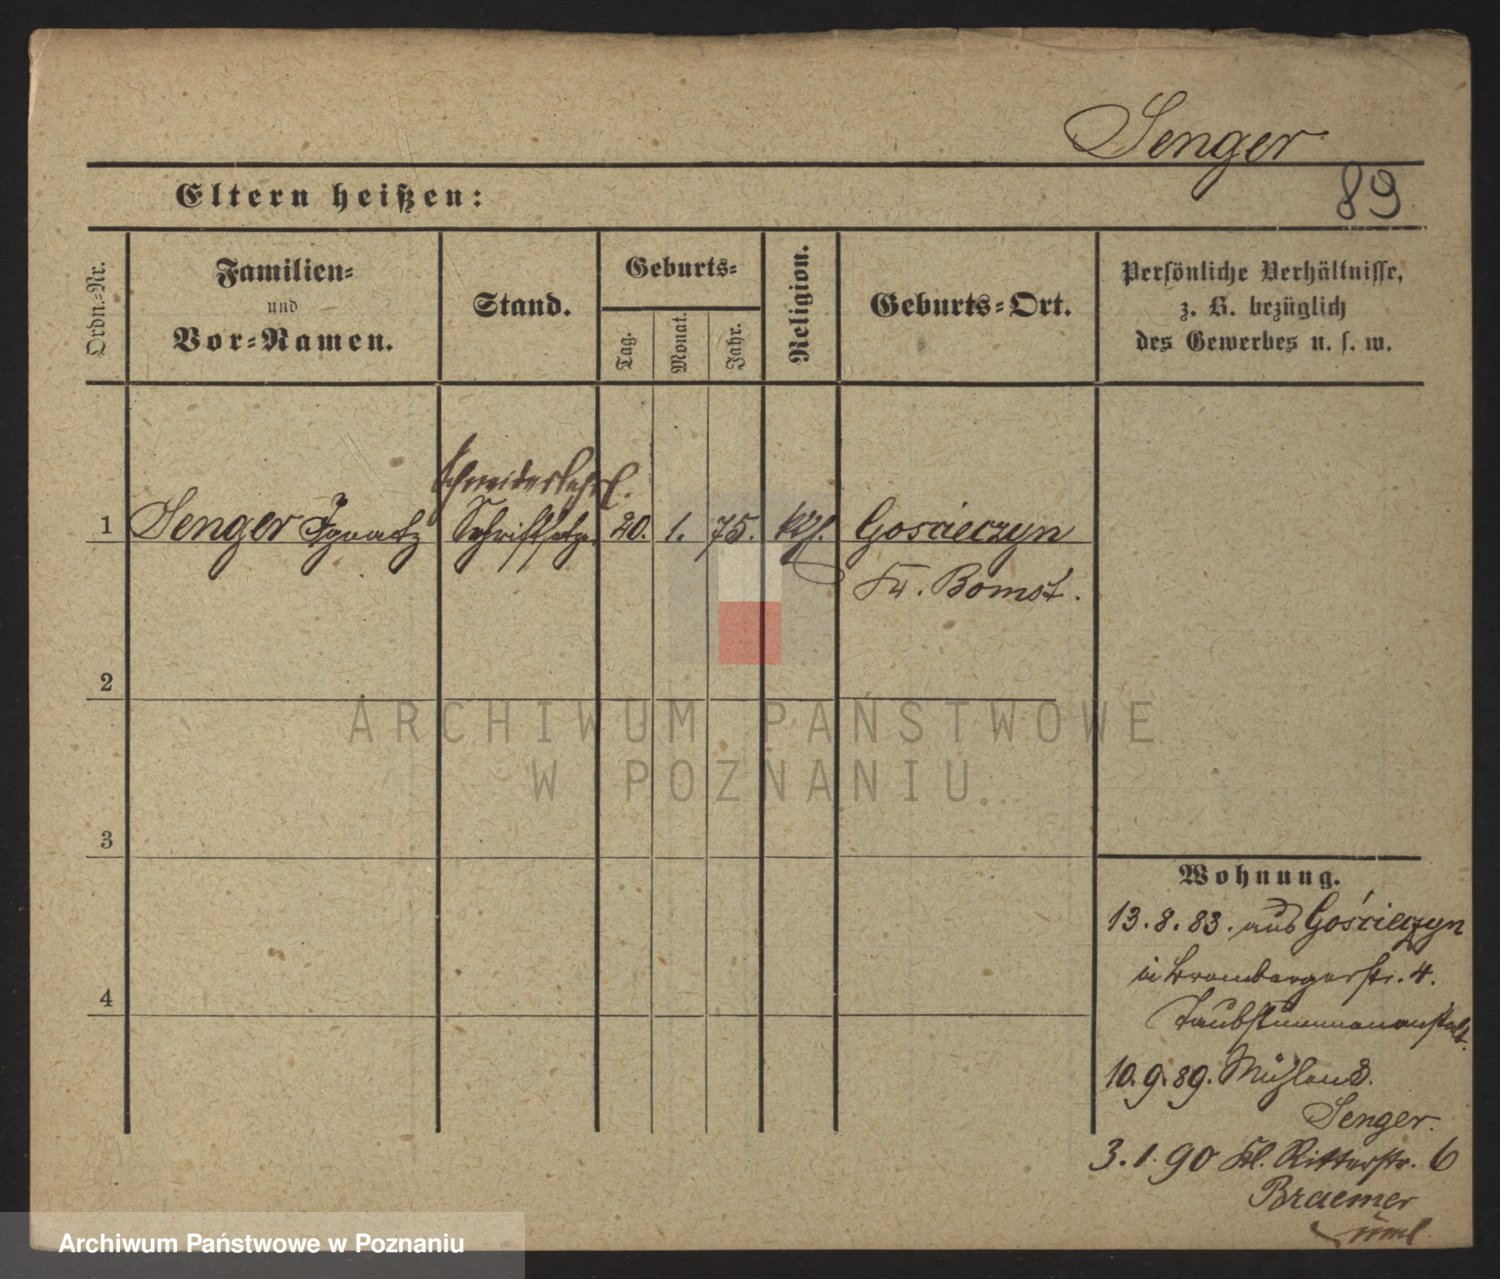 Senger
89
Eltern heißen:
Ordn.-Nr.
Familien-
und
Vor-Namen.
Stand.
Geburts-
Tag.
Monat.
Jahr.
Religion.
Geburts-Ort.
Persönliche Verhältnisse,
z. B. bezüglich
des Gewerbes u. s. w.
Schneiderlehrl.
1 Senger Ignatz Schriftsetzer 20. 1. 75. kth. Goscieczyn
Kr. Bomst.
2
3
4
Wohnung.
13.8.83. aus Gościeczyn
in Brombergerstr. 4.
Taubstummenanstalt.
10.9.89. Mühlen 8.
Senger.
3.1.90 Kl. Ritterstr. 6
Braemer
ARCHIWUM PAŃSTWOWE
W POZNANIU
Archiwum Państwowe w Poznaniu